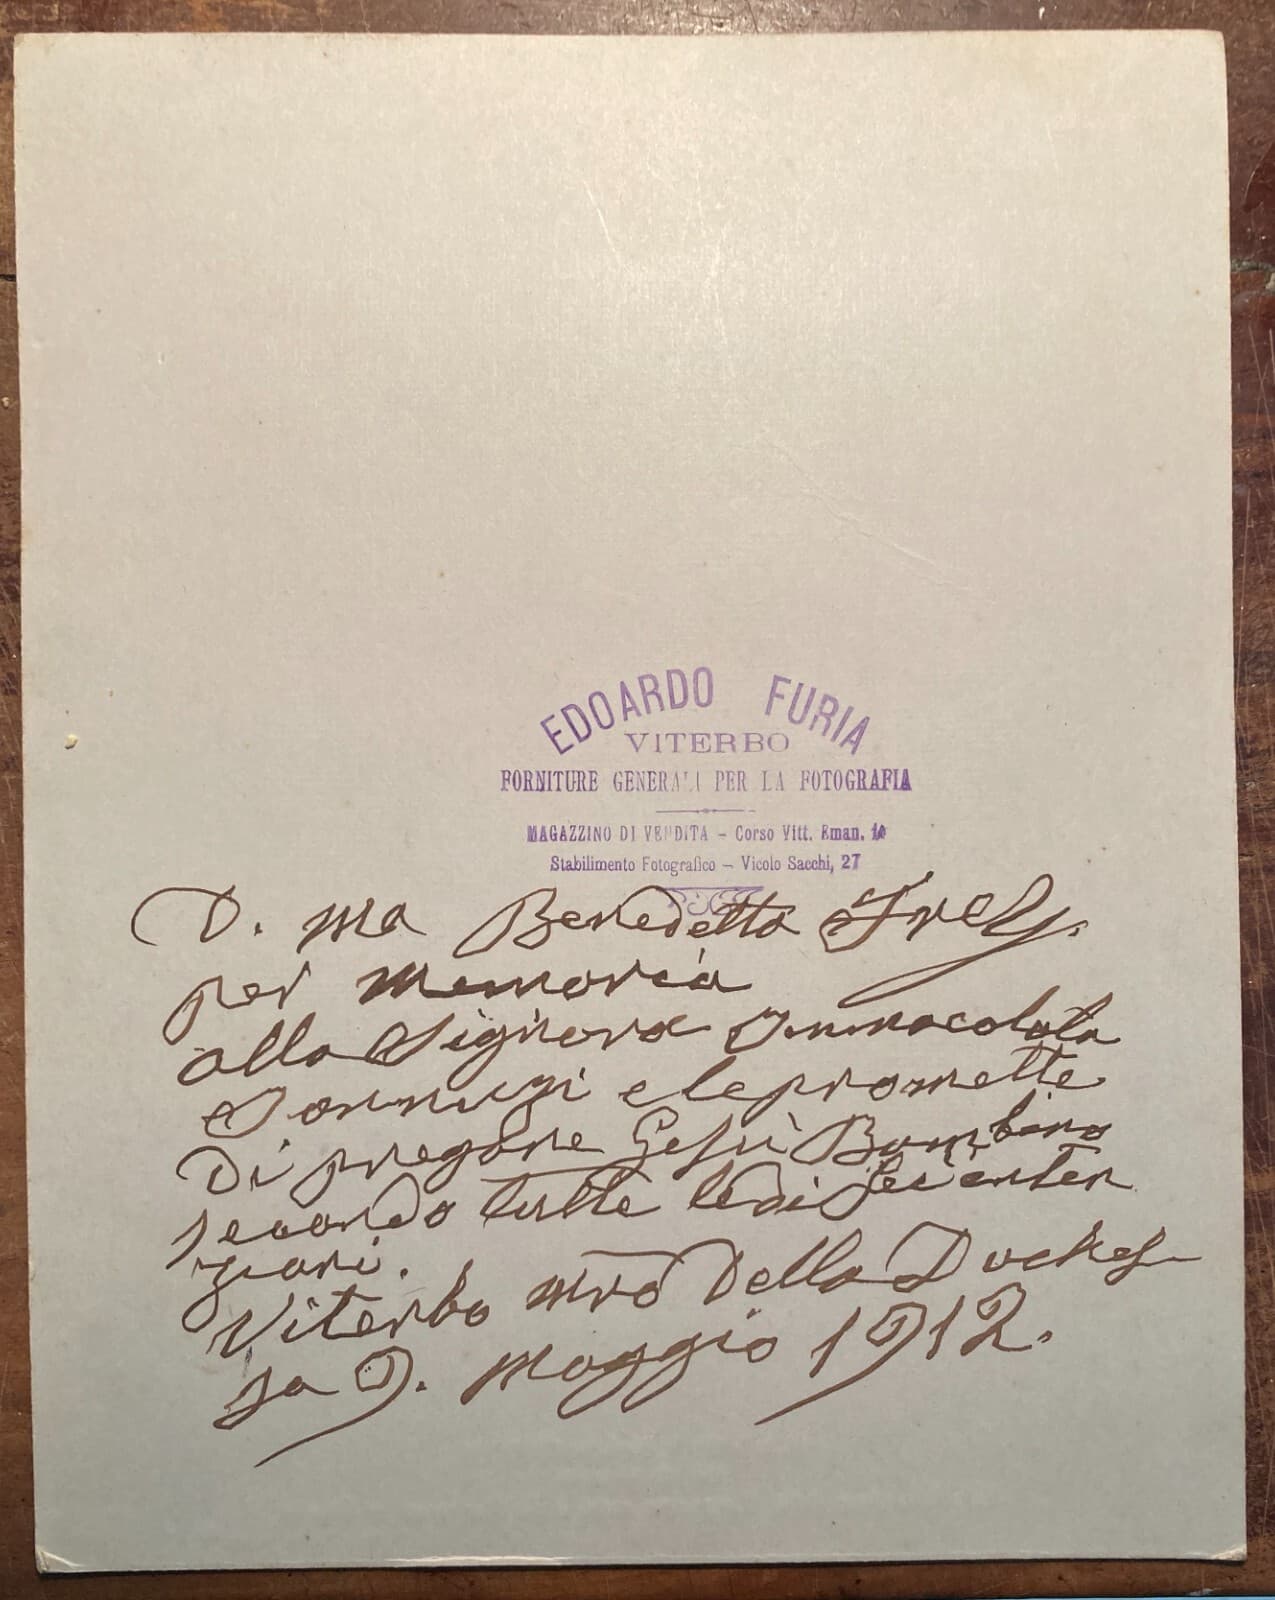 EDOARDO FURIA
VITERBO
FORNITURE GENERALI PER LA FOTOGRAFIA
MAGAZZINO DI VENDITA – Corso Vitt. Eman.
Stabilimento Fotografico – Vicolo Sacchi, 27
D. Ma Benedetta Frey.
per memoria
alla Signora Immacolata
e le promette
Di pregare Gesù Bambino
secondo tutte le di Lei inten
zioni.
Viterbo Mro Della Duches
sa 9. Maggio 1912.